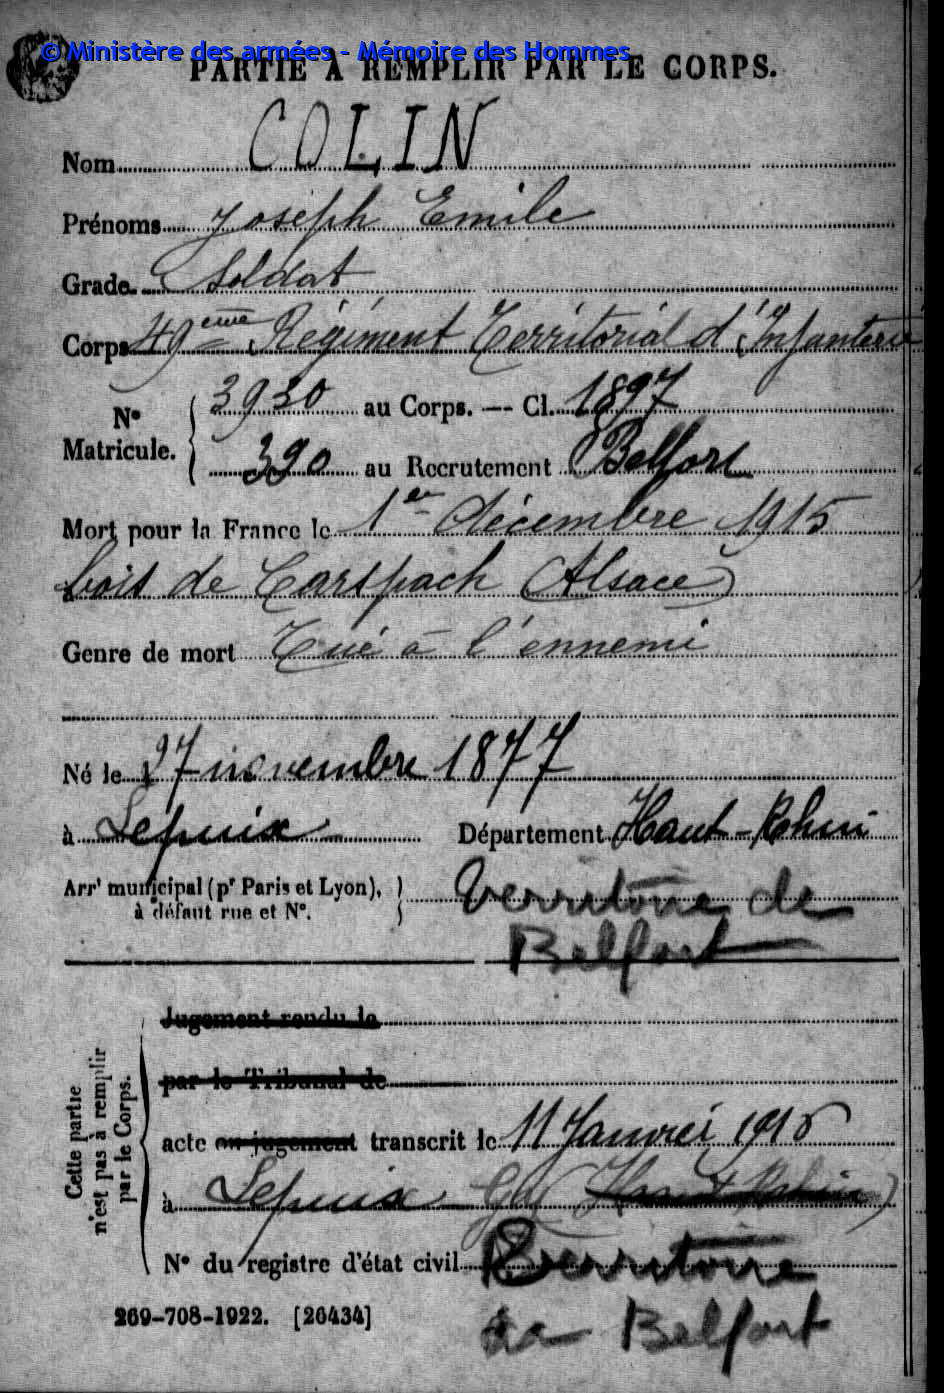 © Ministère des armées - Mémoire des Hommes
PARTIE À REMPLIR PAR LE CORPS.
Nom COLIN
Prénoms Joseph Emile
Grade Soldat
Corps 49ème Régiment Territorial d'Infanterie
N° Matricule. { 3930 au Corps. — Cl. 1897
390 au Recrutement Belfort
Mort pour la France le 1er décembre 1915
à bois de Carspach (Alsace)
Genre de mort Tué à l'ennemi
Né le 27 novembre 1877
à Lepuix Département Haut-Rhin
Arrt municipal (pr Paris et Lyon), à défaut rue et N°. } Territoire de
Belfort
Cette partie n'est pas à remplir par le Corps.
Jugement rendu le
par le Tribunal de
acte ou jugement transcrit le 11 Janvier 1916
à Lepuix Gy (Haut Rhin)
N° du registre d'état civil Territoire
de Belfort
269-708-1922. [26434]